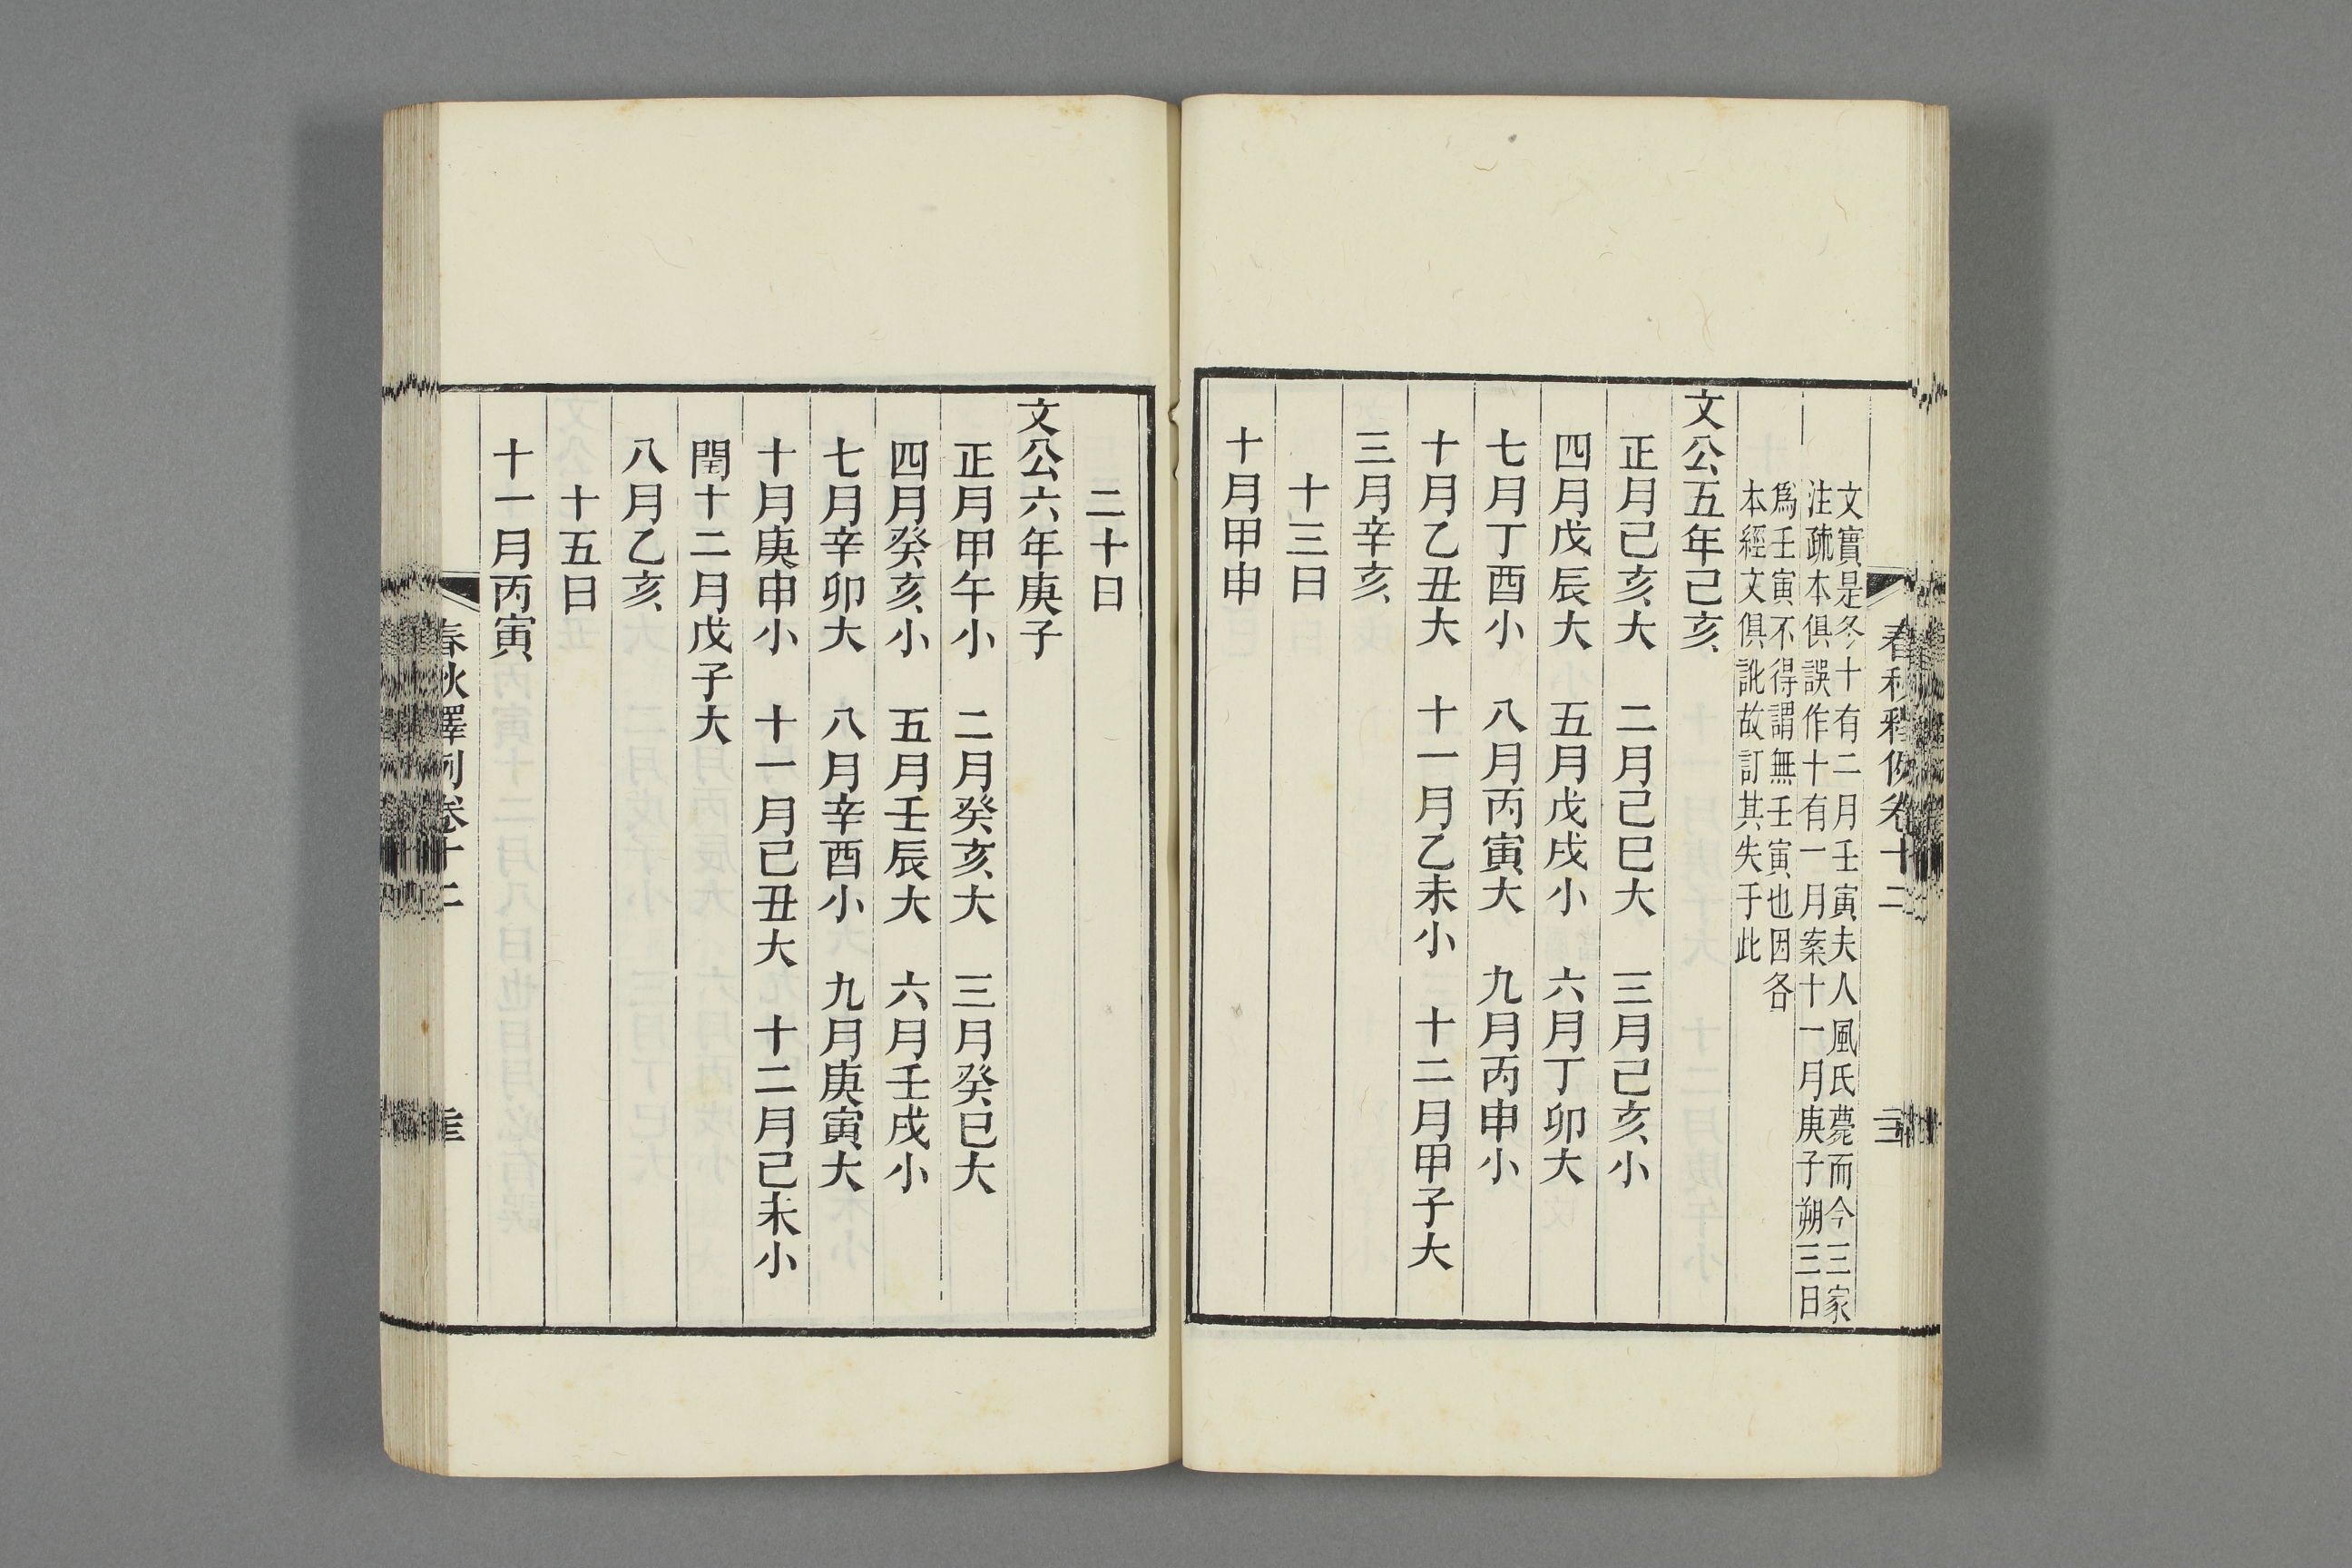 文實是冬十有二月壬寅夫人風氏薨而今三家
注疏本俱誤作十有一月案十一月庚子朔三日
爲壬寅不得謂無壬寅也因各
本經文俱訛故訂其失于此
文公五年己亥
正月己亥大　二月己巳大　三月己亥小
四月戊辰大　五月戊戌小　六月丁卯大
七月丁酉小　八月丙寅大　九月丙申小
十月乙丑大　十一月乙未小　十二月甲子大
三月辛亥
十三日
十月甲申
二十日
文公六年庚子
正月甲午小　二月癸亥大　三月癸巳大
四月癸亥小　五月壬辰大　六月壬戌小
七月辛卯大　八月辛酉小　九月庚寅大
十月庚申小　十一月己丑大　十二月己未小
閏十二月戊子大
八月乙亥
十五日
十一月丙寅
春秋釋例卷十二